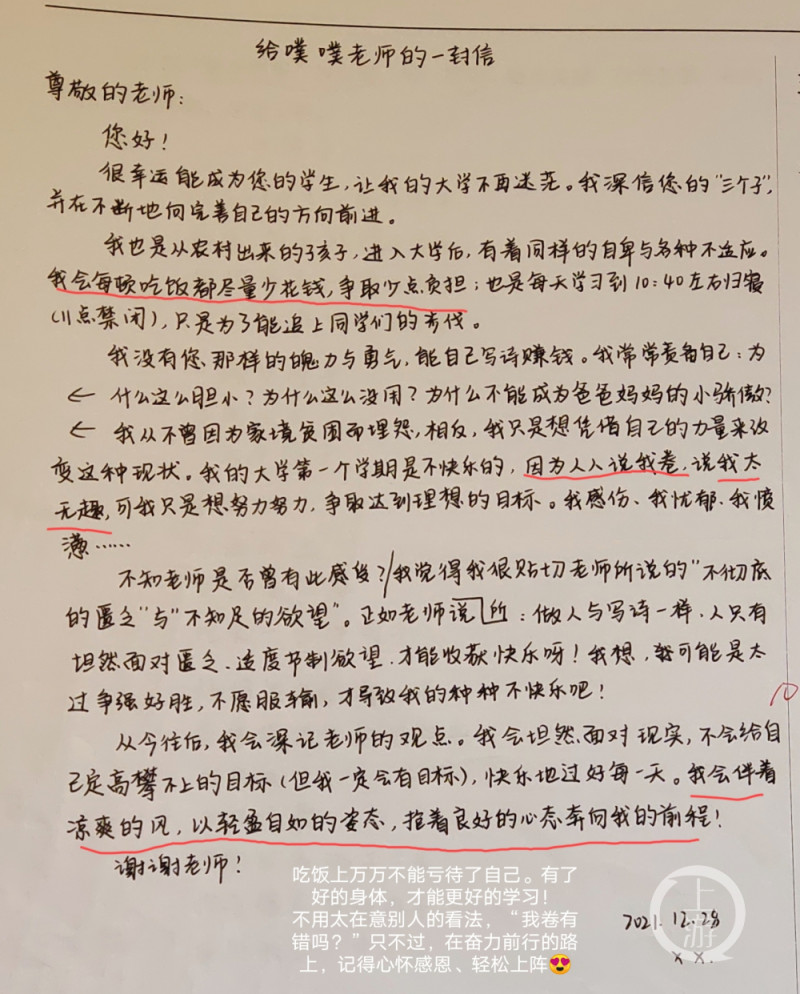 给噗噗老师的一封信
尊敬的老师:
您好!
很幸运能成为您的学生,让我的大学不再迷茫。我深信您的“三个子”,
并在不断地向完善自己的方向前进。
我也是从农村出来的孩子,进入大学后,有着同样的自卑与各种不适应。
我会每顿吃饭都尽量少花钱,争取少点负担;也是每天学习到10:40左右归寝
(11点禁闭),只是为了能追上同学们的步伐。
我没有您那样的魄力与勇气,能自己写诗赚钱。我常常责备自己:为
← 什么这么胆小?为什么这么没用?为什么不能成为爸爸妈妈的小骄傲?
← 我从不曾因为家境贫困而埋怨,相反,我只是想凭借自己的力量来改
变这种现状。我的大学第一个学期是不快乐的,因为人人说我卷,说我太
无趣,可我只是想努力努力,争取达到理想的目标。我感伤、我忧郁、我愤
懑……
不知老师是否曾有此感受?/我觉得我很贴切老师所说的“不彻底
的匮乏”与“不知足的欲望”。正如老师说所:做人与写诗一样,人只有
坦然面对匮乏、适度节制欲望,才能收获快乐呀!我想,我可能是太
过争强好胜,不愿服输,才导致我的种种不快乐吧!
从今往后,我会深记老师的观点。我会坦然面对现实,不会给自
己定高攀不上的目标(但我一定会有目标),快乐地过好每一天。我会伴着
凉爽的风,以轻盈自如的姿态,抱着良好的心态奔向我的前程!
谢谢老师!
吃饭上万万不能亏待了自己。有了
好的身体,才能更好的学习!
不用太在意别人的看法,“我卷有
错吗?”只不过,在奋力前行的路
上,记得心怀感恩、轻松上阵😍
2021.12.28
××.
上游